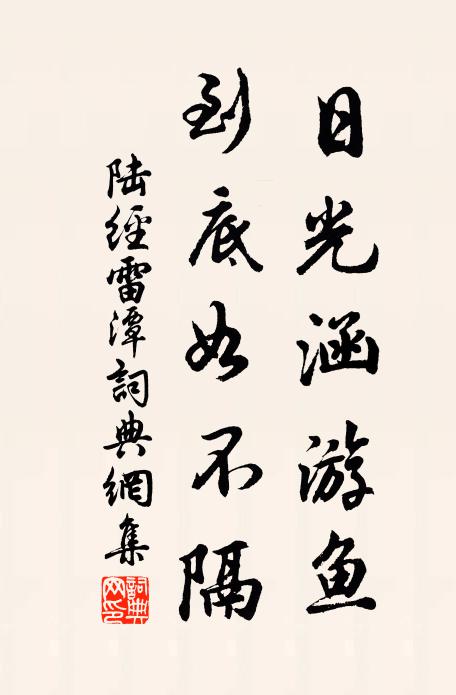 日光涵游鱼
到底如不隔
陆经雷潭詞典網集
詞典网印